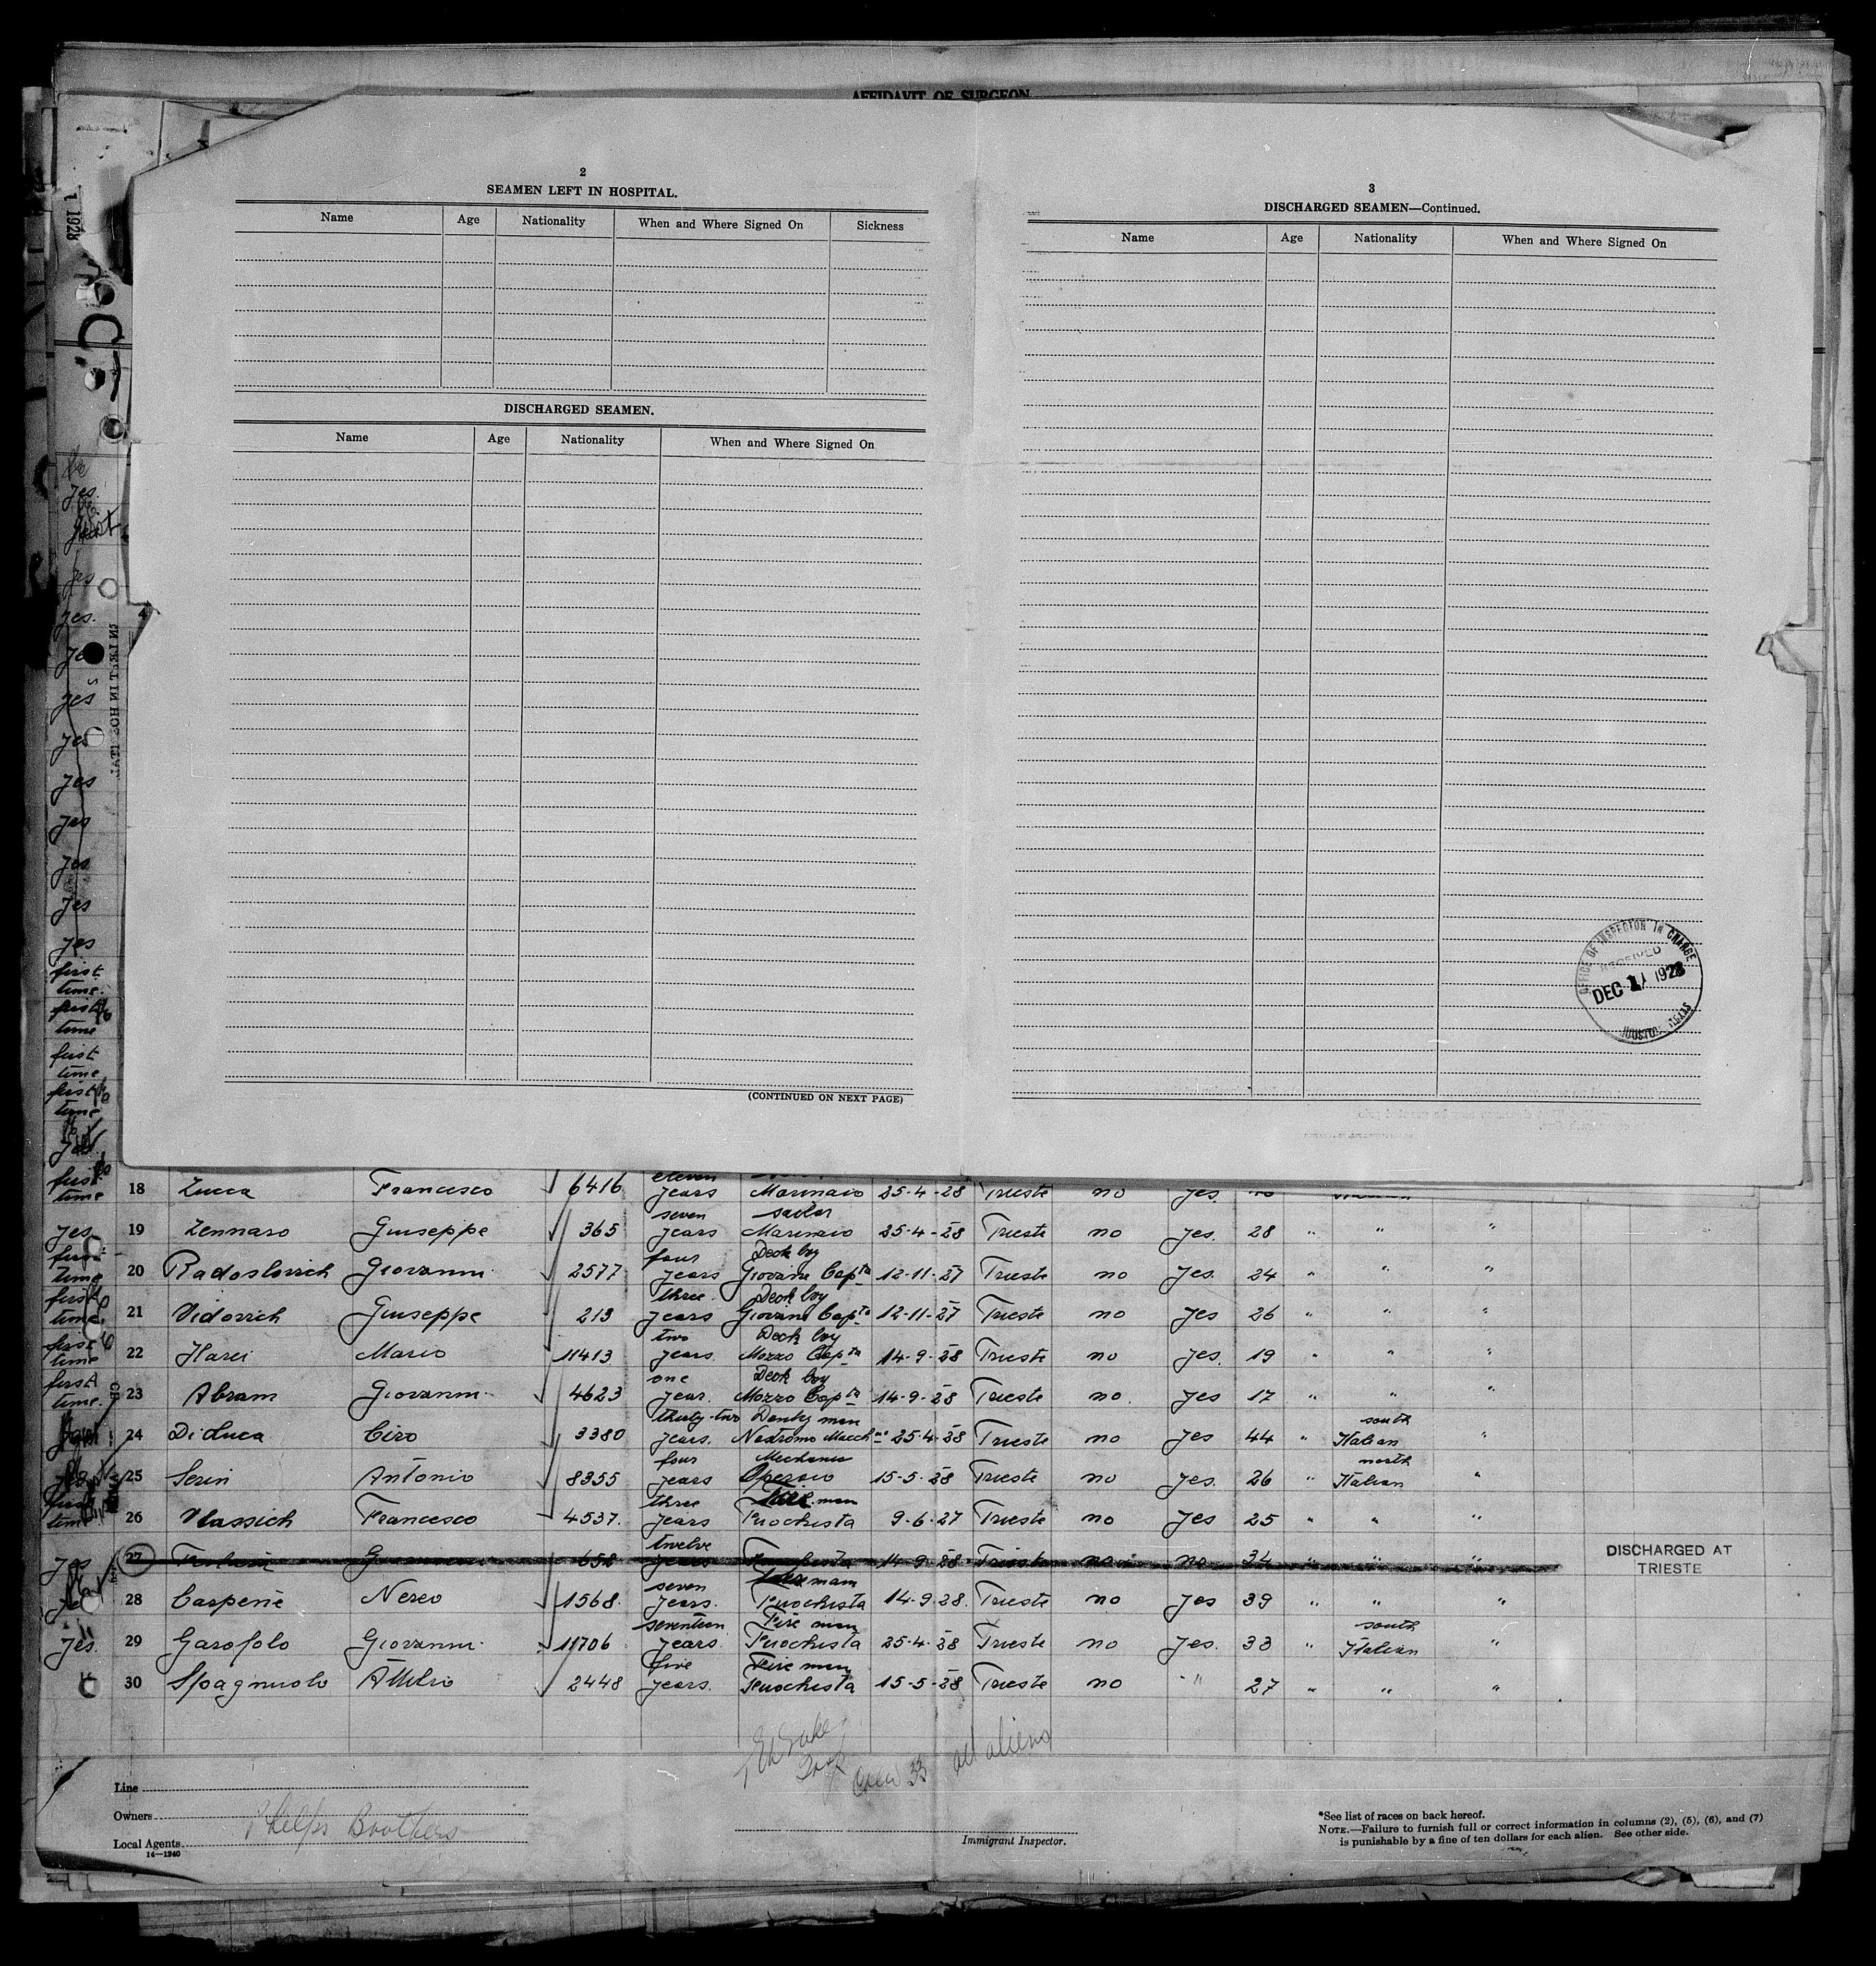 AFFIDAVIT OF SURGEON
2
SEAMEN LEFT IN HOSPITAL.
Name Age Nationality When and Where Signed On Sickness
DISCHARGED SEAMEN.
Name Age Nationality When and Where Signed On
(CONTINUED ON NEXT PAGE)
3
DISCHARGED SEAMEN—Continued.
Name Age Nationality When and Where Signed On
OFFICE OF INSPECTOR IN CHARGE
RECEIVED
DEC 1928
HOUSTON, TEXAS
1 1928
yes.
yes
yes.
yes
yes
yes
yes
yes
yes
yes
first
time.
first
time
first
time
first
time
first eleven
time 18 Zucca Francesco 6416 years Marinaio 25-4-28 Trieste no yes.
seven sailor
yes 19 Zennaro Giuseppe 365 years Marinaio 25-4-28 Trieste no yes. 28 " " "
first four Deck boy
time 20 Radoslovich Giovanni 2577 years Giovane Copta 12-11-27 Trieste no yes. 24 " " "
first three Deck boy
time. 21 Vidovich Giuseppe 213 years Giovane Copta 12-11-27 Trieste no yes 26 " " "
first two Deck boy
time 22 Harei Mario 11413 years. Mozzo Copta 14-9-28 Trieste no yes. 19 " " "
first one Deck boy
time. 23 Abram Giovanni 4623 year. Mozzo Copta 14-9-28 Trieste no. yes 17 " " "
thirty-two Donky man south
24 Di Luca Ciro 3380 years. Nostromo Macch 25-4-28 Trieste no yes 44 " Italian "
four Mechanic north
25 Serin Antonio 8355 years Operaio 15-5-28 Trieste no yes. 26 " Italian
first three Fire man
time 26 Vlassich Francesco 4537. years Fuochista 9-6-27 Trieste no yes 25 " " "
twelve
yes 27 658 years Fuochista 14-9-28 Trieste no no 34 " " " DISCHARGED AT
TRIESTE
seven Fire man
28 Carpenè Nereo 1568. years. Fuochista 14-9-28. Trieste no yes 39 " " "
seventeen Fire man south
yes. 29 Garofolo Giovanni 11706 years. Fuochista 25-4-28 Trieste no yes. 33 " Italian "
five Fire man
30 Spagnuolo Attilio 2448 years. Fuochista 15-5-28 Trieste no " 27 " " "
Crew 33 all aliens
Line
Owners
Phelps Brothers
Local Agents
14—1240
Immigrant Inspector.
*See list of races on back hereof.
NOTE.—Failure to furnish full or correct information in columns (2), (5), (6), and (7)
is punishable by a fine of ten dollars for each alien. See other side.